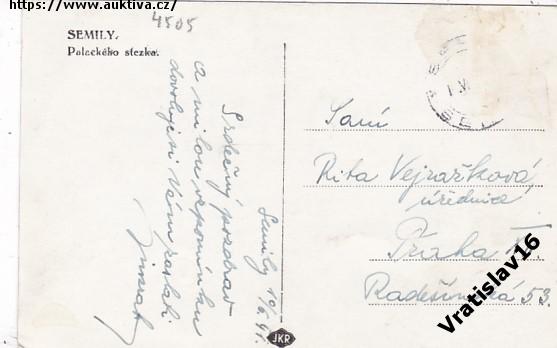 https://www.auktiva.cz/
4505
SEMILY.
Palackého stezka.
Semily 10/6. 41.
Srdečný pozdrav
a milou vzpomínku
dovoluje si Vám zaslati
Paní
Rita Vejražková,
úřednice
Praha
53.
JKR
Vratislav16